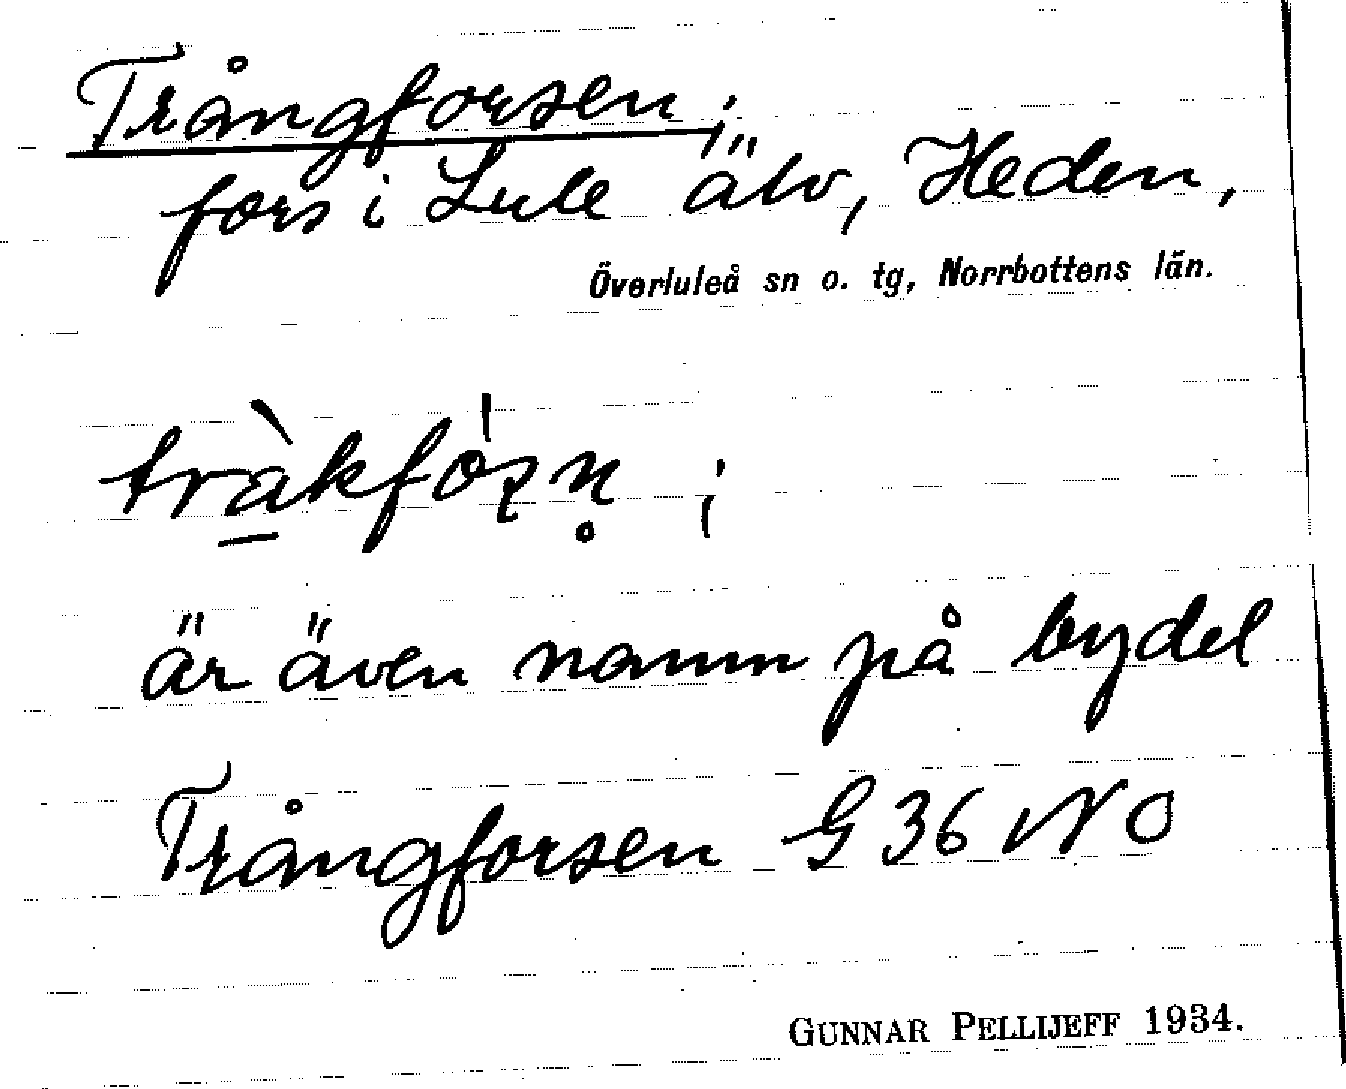 Trångforsen;
fors i Lule älv, Heden,
Överluleå sn o. tg, Norrbottens län.
tràkfósn̥ ;
är även namn på bydel
Trångforsen G 36 NO
GUNNAR PELLIJEFF 1934.